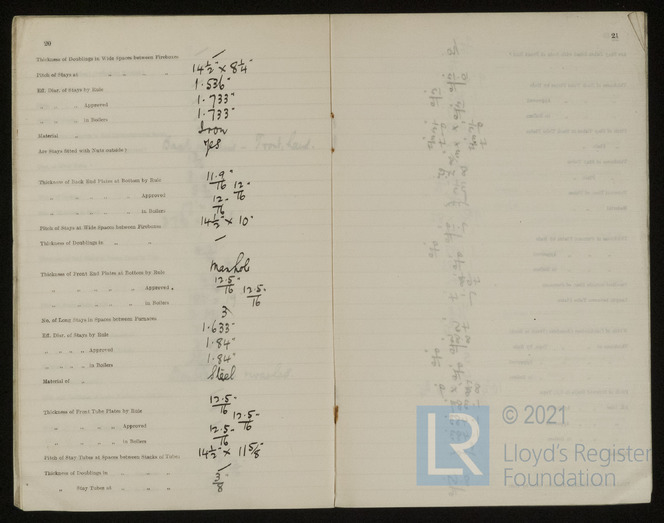 20
Thickness of Doublings in Wide Spaces between Fireboxes —
Pitch of Stays at " " " " 14 1/2" × 8 1/4"
Eff. Diar. of Stays by Rule 1.536"
" " " " Approved 1.733"
" " " " in Boilers 1.733"
Material " Iron
Are Stays fitted with Nuts outside? Yes
Thickness of Back End Plates at Bottom by Rule 11.9/16"
" " " " " Approved 12/16"
" " " " " in Boilers 12/16"
Pitch of Stays at Wide Spaces between Fireboxes 14 1/2" × 10"
Thickness of Doublings in " " —
Thickness of Front End Plates at Bottom by Rule Manhole
" " " " " Approved 12.5/16"
" " " " " in Boilers 12.5/16"
No. of Long Stays in Spaces between Furnaces 3
Eff. Diar. of Stays by Rule 1.633"
" " " " Approved 1.84"
" " " " in Boilers 1.84"
Material of " Steel
Thickness of Front Tube Plates by Rule 12.5/16"
" " " " Approved 12.5/16"
" " " " in Boilers 12.5/16"
Pitch of Stay Tubes at Spaces between Stacks of Tubes 14 1/2" × 11 5/8"
Thickness of Doublings in " " " —
" Stay Tubes at " " " 3/8"
21
LR
© 2021
Lloyd's Register
Foundation